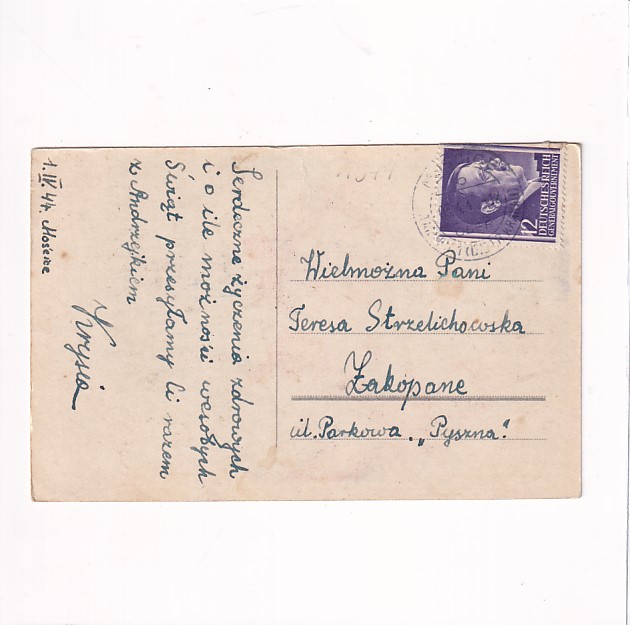 1.IV.44. Mościce
Serdeczne życzenia zdrowych
i o ile możności wesołych
Świąt przesyłamy Ci razem
z Andrzejkiem
Krysia
DEUTSCHES REICH
GENERALGOUVERNEMENT
12
Wielmożna Pani
Teresa Strzelichowska
Zakopane
ul. Parkowa. „Pyszna."